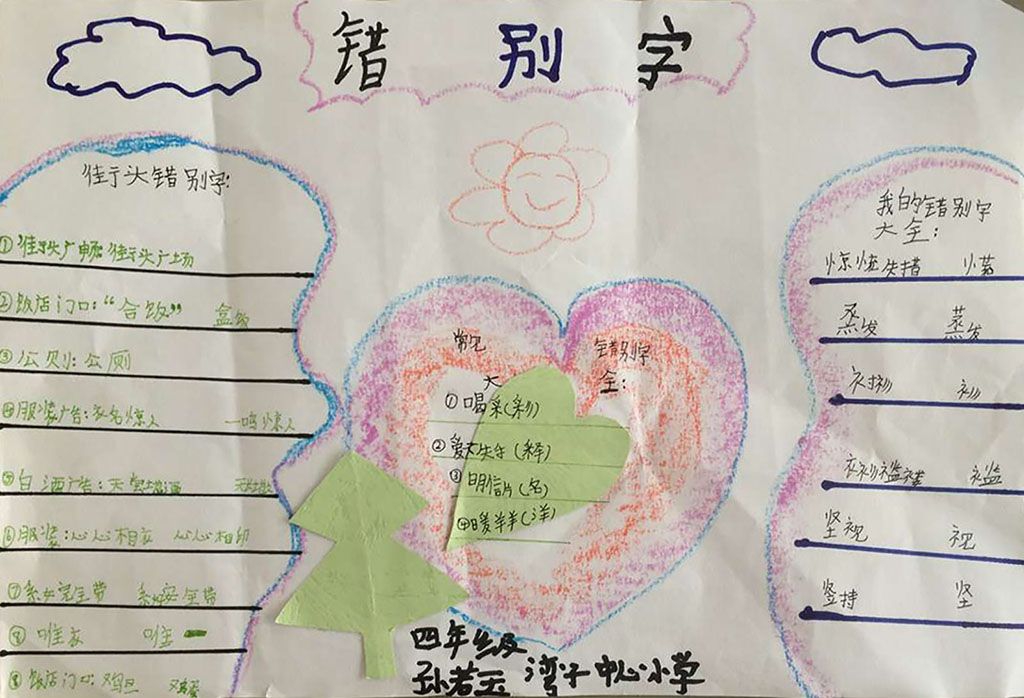 错 别 字
街头错别字:
①街头广
街头广场
②饭店门口:“合饭” 盒饭
③公则:公厕
④服装广告:衣名惊人 一鸣惊人
⑤白酒广告:天
⑥服装:心心相衣 心心相印
⑦系好完全带 系好安全带
⑧ 唯家 唯
⑨饭店门口:鸡旦 鸡蛋
常见 错别字
大 全:
①喝采(彩)
②爱不失手(释)
③明信片(名)
④暖羊羊(洋)
我的错别字
大全:
惊慌失措
蒸发 蒸发
衬衫 衫
衣衫褴褛 褴
坚视 视
竖持 坚
四年级
孙若玉 湾子中心小学